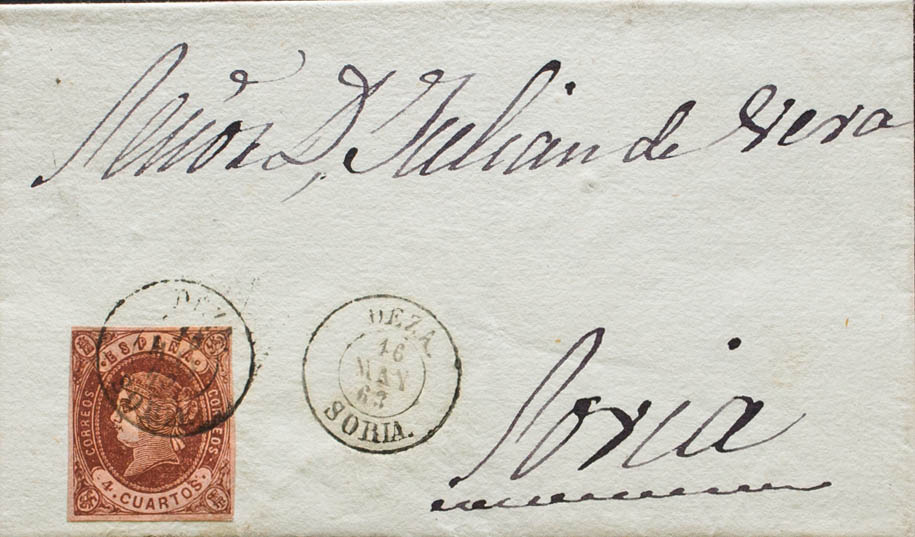 Señor D. Julian de Vera
DEZA
ESPAÑA
CORREOS
CORREOS
4. CUARTOS.
DEZA.
16
MAY
63
SORIA.
Soria